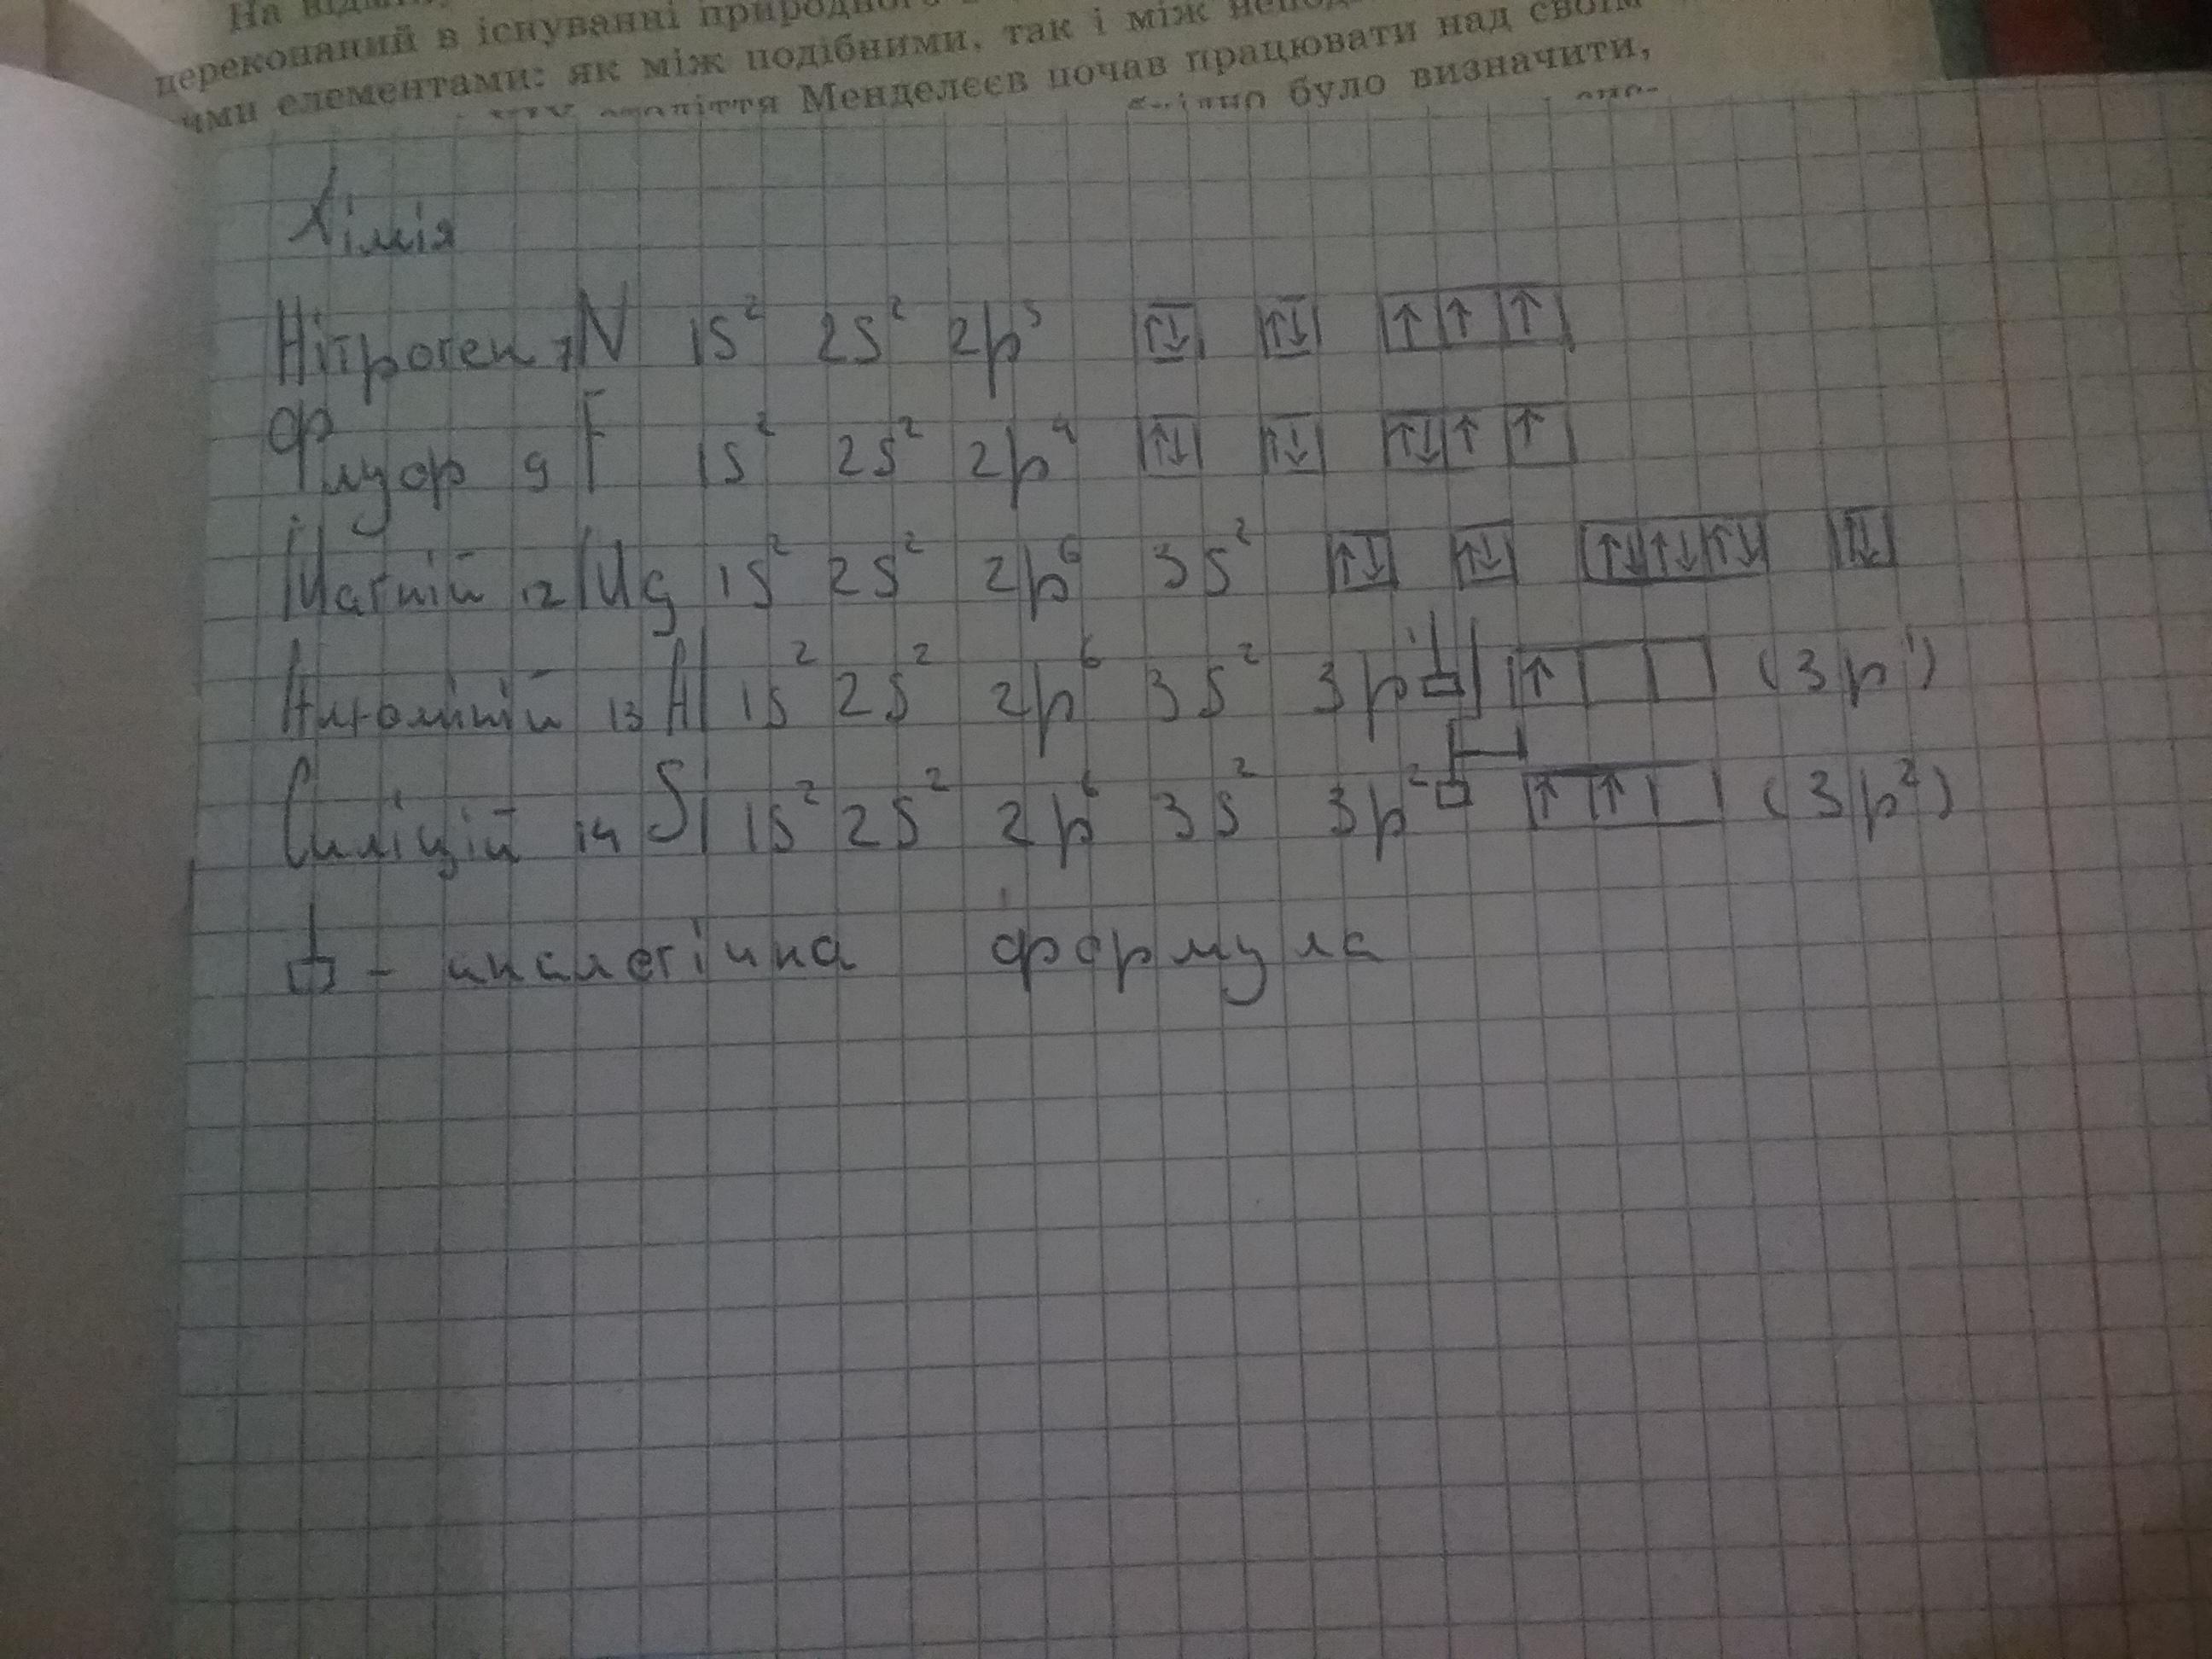 На
переконаний в існуванні природного
ими елементами: як між подібними, так і між
століття Менделєєв почав працювати над своїм
було визначити,
Хімія
Нітроген ₇N 1s² 2s² 2p³ ↑↓ ↑↓ ↑ ↑ ↑
Флуор 9 F 1s² 2s² 2p⁴ ↑↓ ↑↓ ↑↓ ↑ ↑
Магній 12 Mg 1s² 2s² 2p⁶ 3s² ↑↓ ↑↓ ↑↓ ↑↓ ↑↓ ↑↓
Алюміній 13 Al 1s² 2s² 2p⁶ 3s² 3p¹ ↑ (3p¹)
Силіцій 14 Si 1s² 2s² 2p⁶ 3s² 3p² ↑ ↑ (3p²)
- аналегічна формула